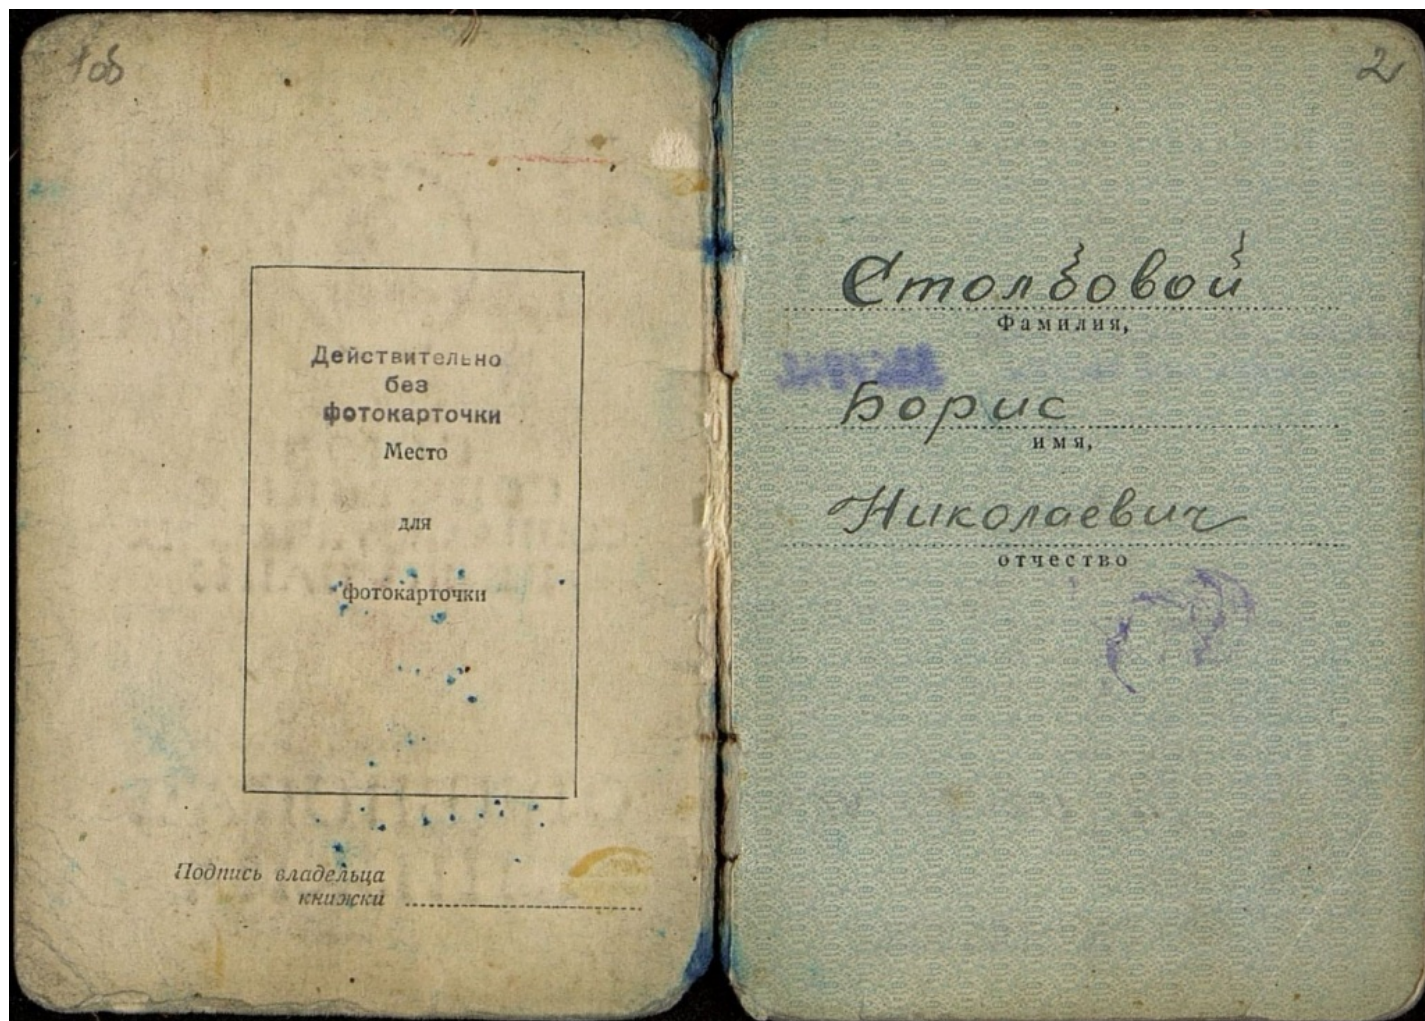 1об
Действительно
без
фотокарточки
Место
для
фотокарточки
Подпись владельца
книжки
2
Столбовой
Фамилия,
Борис
имя,
Николаевич
отчество